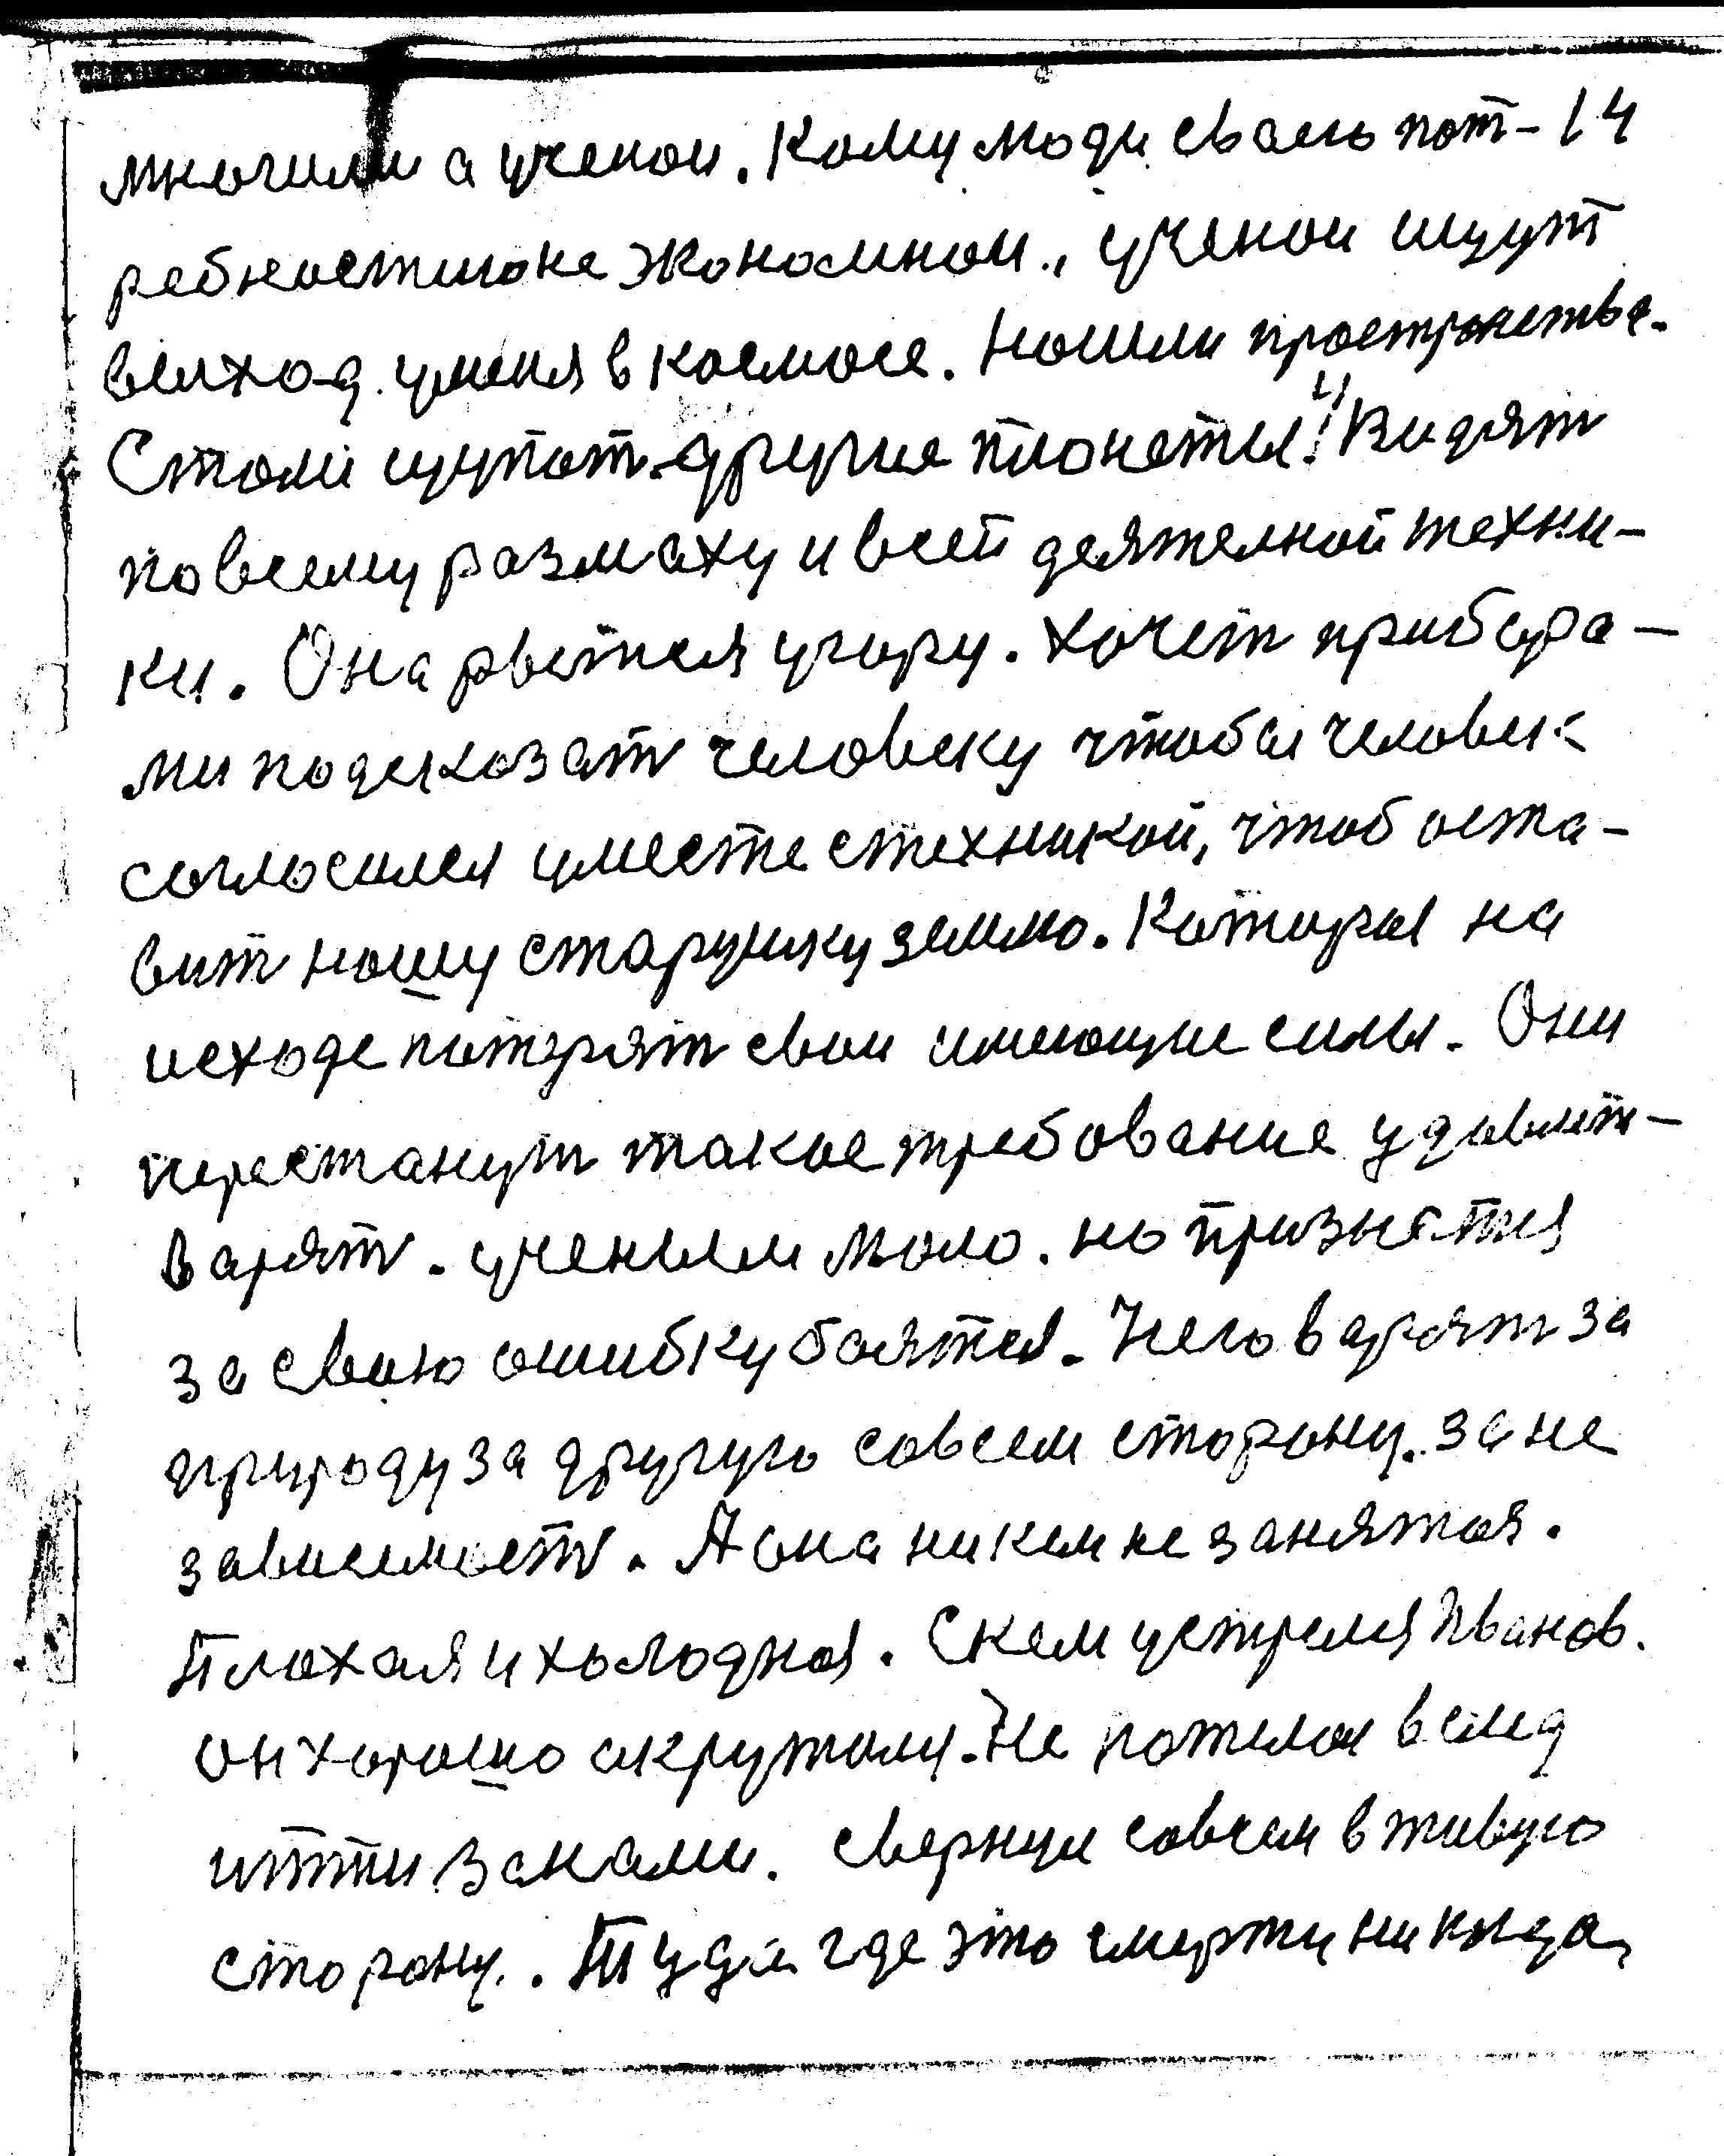 многими а ученои. Кому люди сваею пот- 14
ребностию не экономнои., ученои ищут
выход. уменя в космосе. Ношли простронстве.
Столи щупат. другие плонеты! Видят
по всему размаху и всей деятелной техни-
ки. Она рвется угору. Хочет прибора-
ми подсказат человеку чтобы человек
согласился уместе стехникой, чтоб оста-
вит нашу старушку землю. Которы на
исходе потерят свои имеющие силы. Они
перестанут такое требование удовлет-
варят. ученым мало. но признатся
за свою ошибку боятся. Чего варят за
природу за другую совсем сторону. за не
зависимост. А она никем не занятоя.
Плохая и холодноя. Скем устрелся Иванов.
он хорошо скрутому. Не потелои вслид
итти за нами. свернул совсем в живую
сторону. Туда где это смерти никогда,